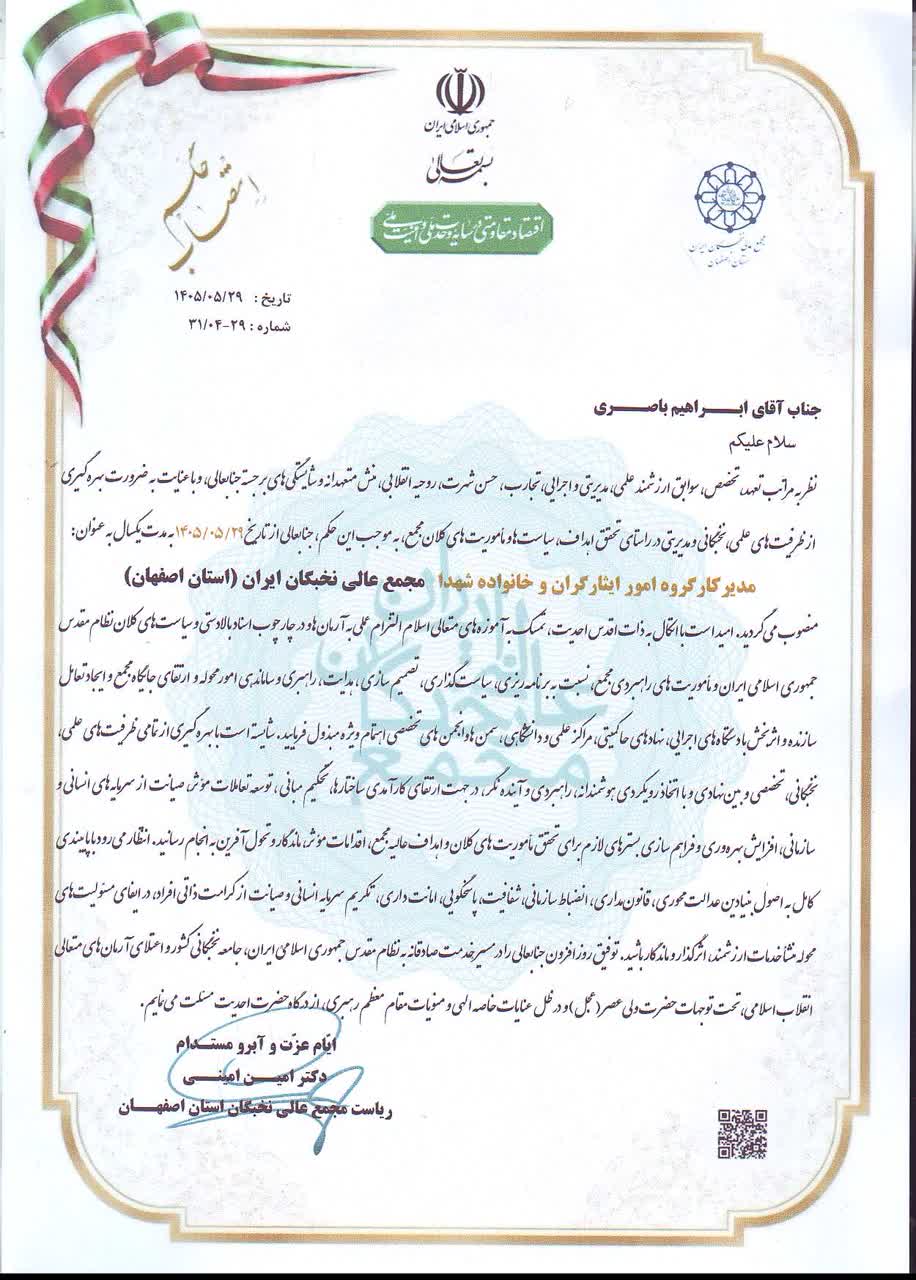 جمهوری اسلامی ایران
بسمه تعالی
اقتصاد مقاومتی در سایه وحدت ملی و امنیت ملی
حکم انتصاب
مجمع عالی نخبگان ایران
استان اصفهان
تاریخ : ۱۴۰۵/۰۵/۲۹
شماره : ۲۹-۳۱/۰۴
جناب آقای ابراهیم باصری
سلام علیکم
نظر به مراتب تعهد، تخصص، سوابق ارزشمند علمی، مدیریتی و اجرایی، تجارب، حسن شهرت، روحیه انقلابی، منش متعهدانه و شایستگی‌های برجسته جنابعالی، و با عنایت به ضرورت بهره گیری
از ظرفیت های علمی، نخبگانی و مدیریتی در راستای تحقق اهداف، سیاست‌ها و مأموریت های کلان مجمع، به موجب این حکم، جنابعالی از تاریخ ۱۴۰۵/۰۵/۲۹ به مدت یکسال به عنوان:
مدیر کارگروه امور ایثارگران و خانواده شهدا مجمع عالی نخبگان ایران (استان اصفهان)
منصوب می گردید. امید است با اتکال به ذات اقدس احدیت، تمسک به آموزه های متعالی اسلام التزام عملی به آرمان‌ها و در چارچوب اسناد بالادستی و سیاست های کلان نظام مقدس
جمهوری اسلامی ایران و مأموریت های راهبردی مجمع، نسبت به برنامه ریزی، سیاست گذاری، تصمیم سازی، هدایت، راهبری و ساماندهی امور محوله و ارتقای جایگاه مجمع و ایجاد تعامل
سازنده و اثربخش با دستگاه های اجرایی، نهادهای حاکمیتی، مراکز علمی و دانشگاهی، سمن ها و انجمن های تخصصی اهتمام ویژه مبذول فرمایید. شایسته است با بهره گیری از تمامی ظرفیت های علمی،
نخبگانی، تخصصی و بین نهادی و با اتخاذ رویکردی هوشمندانه، راهبردی و آینده نگر، در جهت ارتقای کارآمدی ساختارها، تحکیم مبانی، توسعه تعاملات مؤثر، صیانت از سرمایه های انسانی و
سازمانی، افزایش بهره‌وری و فراهم سازی بسترهای لازم برای تحقق مأموریت های کلان و اهداف عالیه مجمع، اقدامات مؤثر، ماندگار و تحول آفرین به انجام رسانید. انتظار می رود با پایبندی
کامل به اصول بنیادین عدالت محوری، قانون‌مداری، انضباط سازمانی، شفافیت، پاسخگویی، امانت داری، تکریم سرمایه انسانی و صیانت از کرامت ذاتی افراد، در ایفای مسئولیت های
محوله منشأ خدمات ارزشمند، اثرگذار و ماندگار باشید. توفیق روز افزون جنابعالی را در مسیر خدمت صادقانه به نظام مقدس جمهوری اسلامی ایران، جامعه نخبگانی کشور و اعتلای آرمان های متعالی
انقلاب اسلامی، تحت توجهات حضرت ولی عصر (عج) و در ظل عنایات خاصه الهی و منویات مقام معظم رهبری، از درگاه حضرت احدیت مسئلت می نمایم.
ایام عزت و آبرو مستدام
دکتر امین امینی
ریاست مجمع عالی نخبگان استان اصفهان